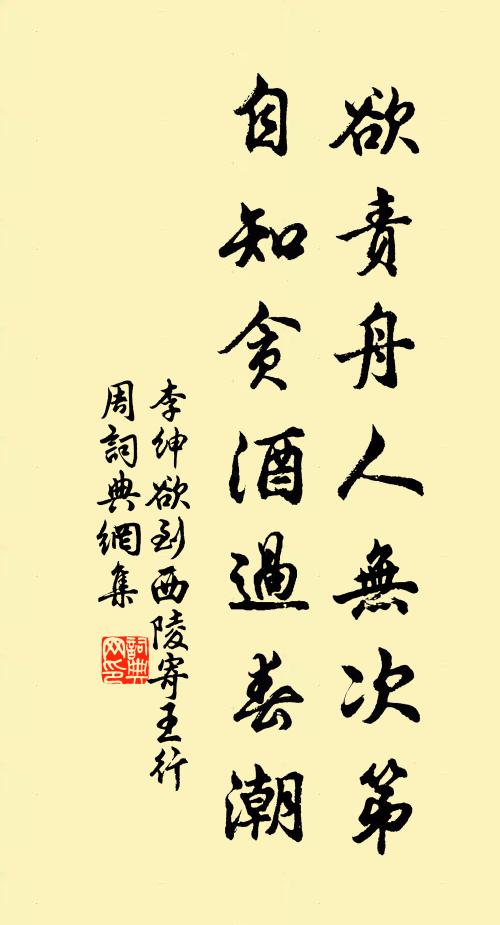 欲責舟人無次第
自知貪酒過春潮
李紳欲到西陵寄王行
周詞典網集
詞典網印